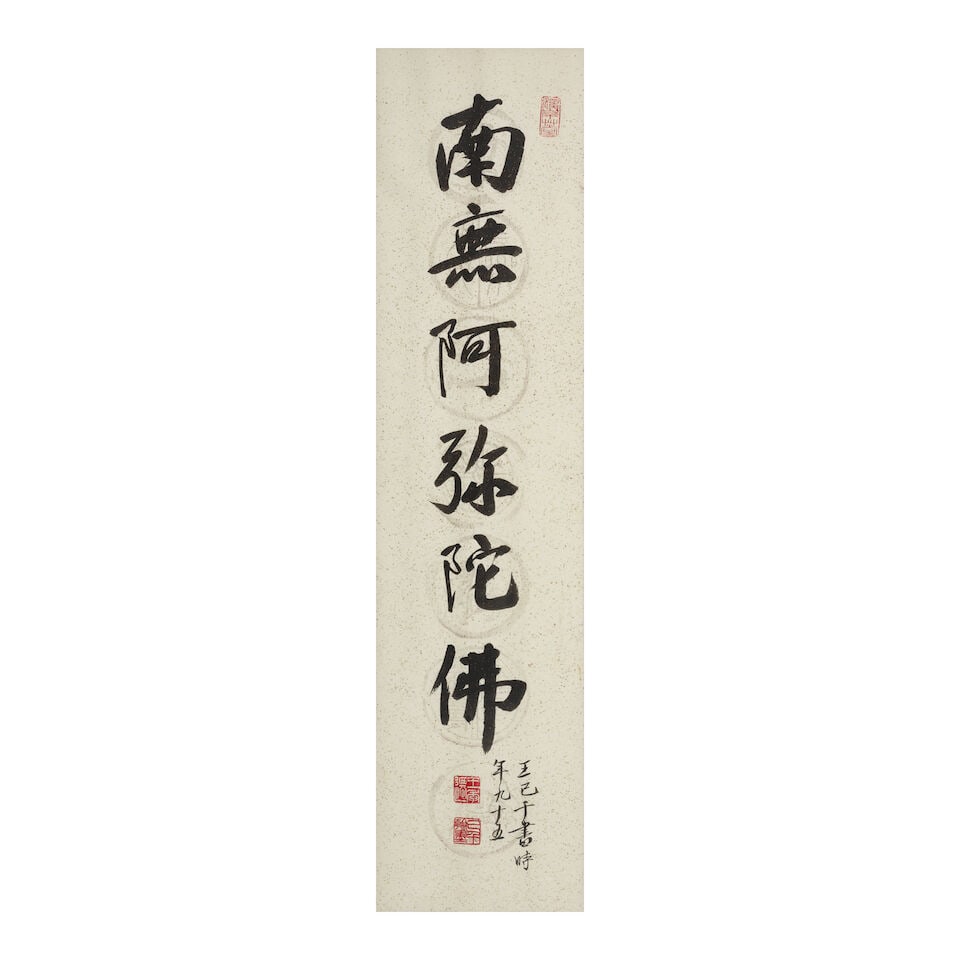 南無阿弥陀佛
王己千書時
年九十五